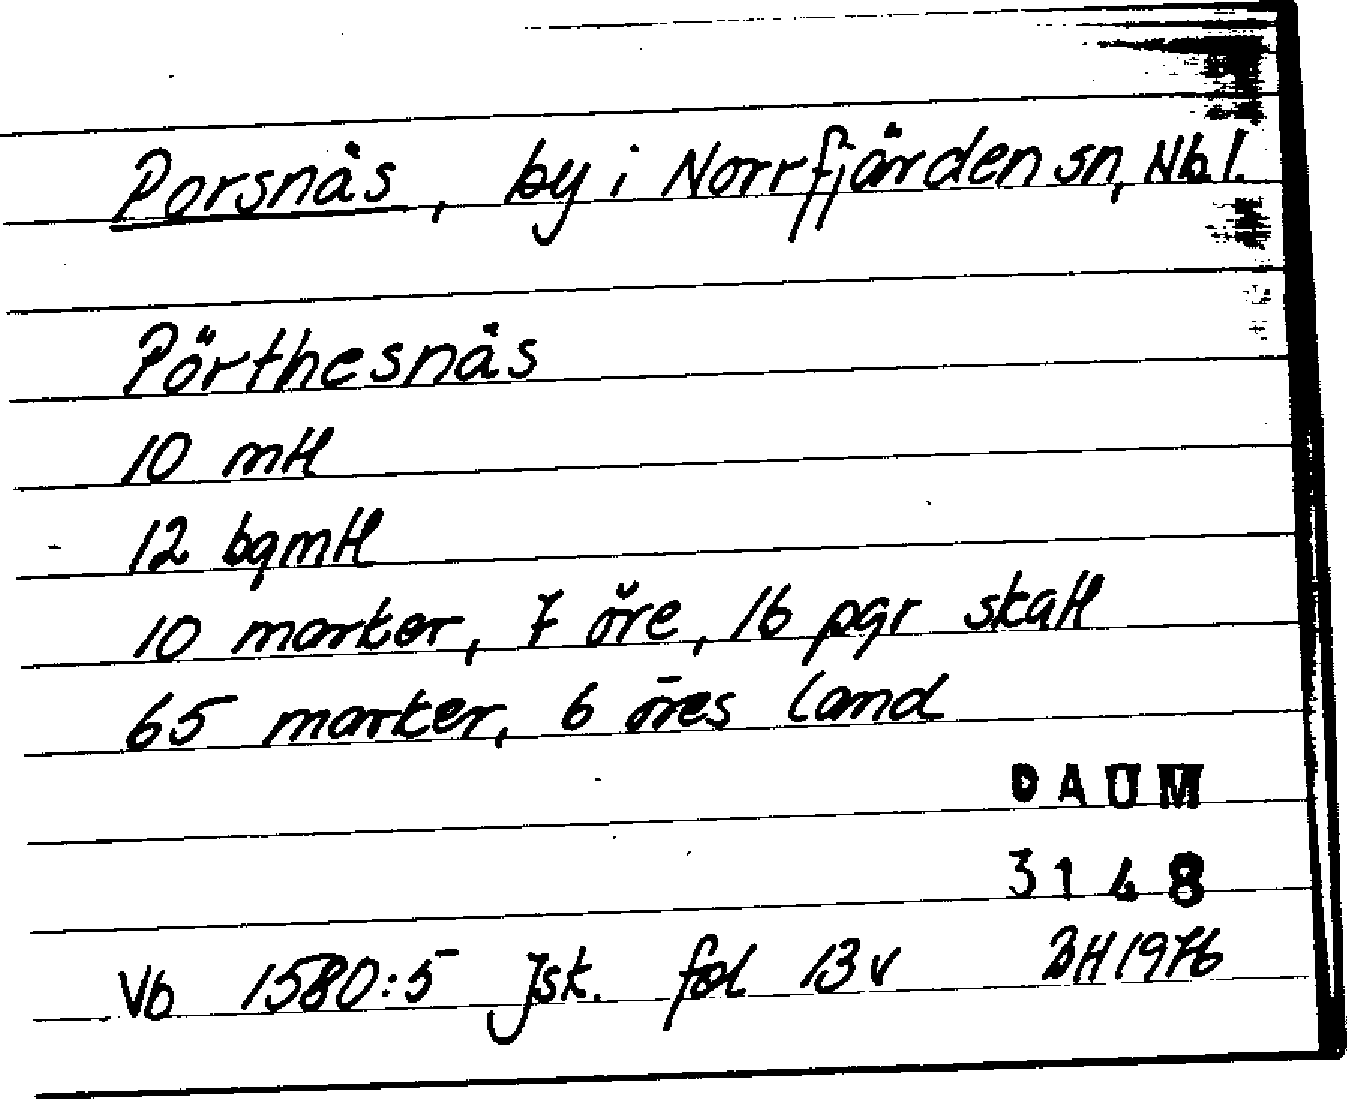 Porsnäs, by i Norrfjärden sn, Nbl.
Pörthesnäs
10 mtl
12 bgmtl
10 marker, 7 öre, 16 pgr skatt
65 marker, 6 öres land
DAUM
3148
Vb 1580:5 Jsk. fol 13 v BH 1976